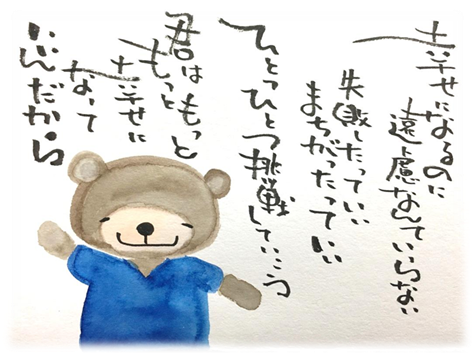 幸せになるのに
遠慮なんていらない
失敗したっていい
まちがったっていい
ひとつひとつ挑戦していこう
君はもっと
もっと
幸せに
なって
いいんだから